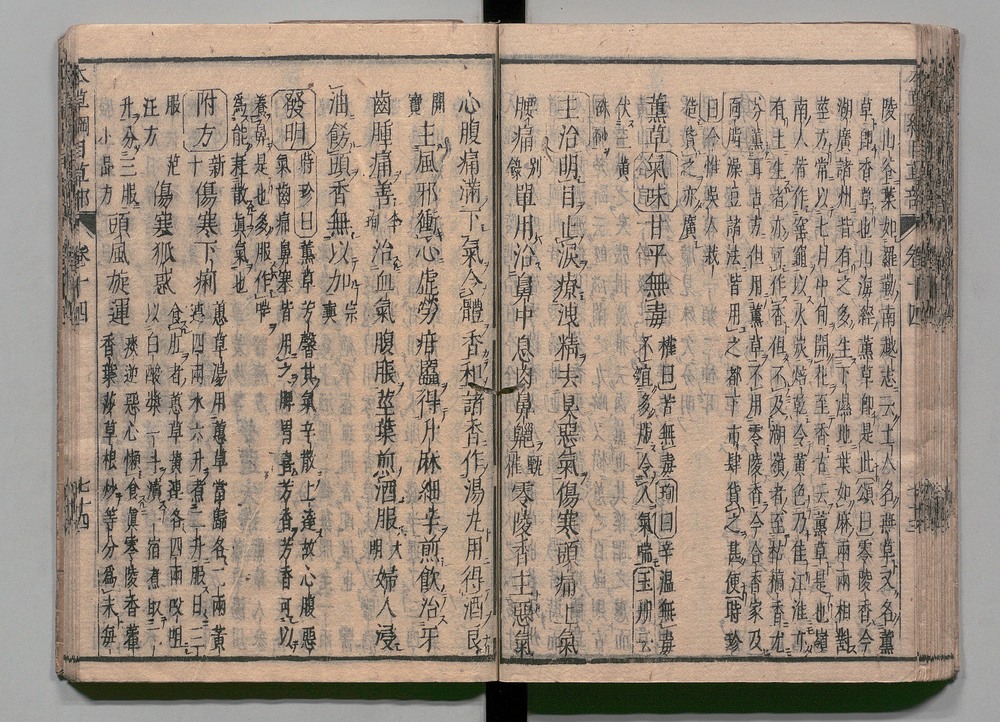 陵山谷葉如羅勒南越志云土人名燕草又名薰
草卽香草也山海經薰草卽是此頌曰零陵香今
湖廣諸州皆有之多生下濕地葉如麻兩兩相對
莖方常以七月中旬開花至香古云薰草是也嶺
南人皆作窰竈以火炭焙乾令黃色乃佳江淮亦
有土生者亦可作香但不及湖嶺者至枯槁香尤
芬薰耳古方但用薰草不用零陵香今合香家及
面脂澡豆諸法皆用之都下市肆貨之甚便時珍
曰今惟吳人栽
造貨之亦廣
薰草氣味甘平無毒 權曰苦無毒珣曰辛溫無毒
不宜多服令人氣喘玉册云
伏三黃
硃砂
主治明目止淚療洩精去臭惡氣傷寒頭痛上氣
腰痛別錄單用治鼻中息肉鼻齆甄權零陵香主惡氣
心腹痛滿下氣令體香和諸香作湯丸用得酒良
開寶主風邪衝心虛勞疳䘌得升麻細辛煎飲治牙
齒腫痛善李珣治血氣腹脹莖葉煎酒服大明婦人浸
油飾頭香無以加宗奭
發明時珍曰薰草芳馨其氣辛散上達故心腹惡
氣齒痛鼻塞皆用之脾胃喜芳香芳香可以
養鼻是也多服作喘
爲能耗散眞氣也
附方新十 傷寒下痢 蕙草湯用蕙草當歸各二兩黃
連四兩水六升煮二升服日三
服范汪方 傷寒狐惑 食肛者蕙草黃連各四兩㕮咀
以白酸漿一斗漬一宿煮取二
升分三服
小品方 頭風旋運 痰逆惡心懶食眞零陵香藿
香葉莎草根炒等分爲末每
本草綱目草部 卷十四 七十四